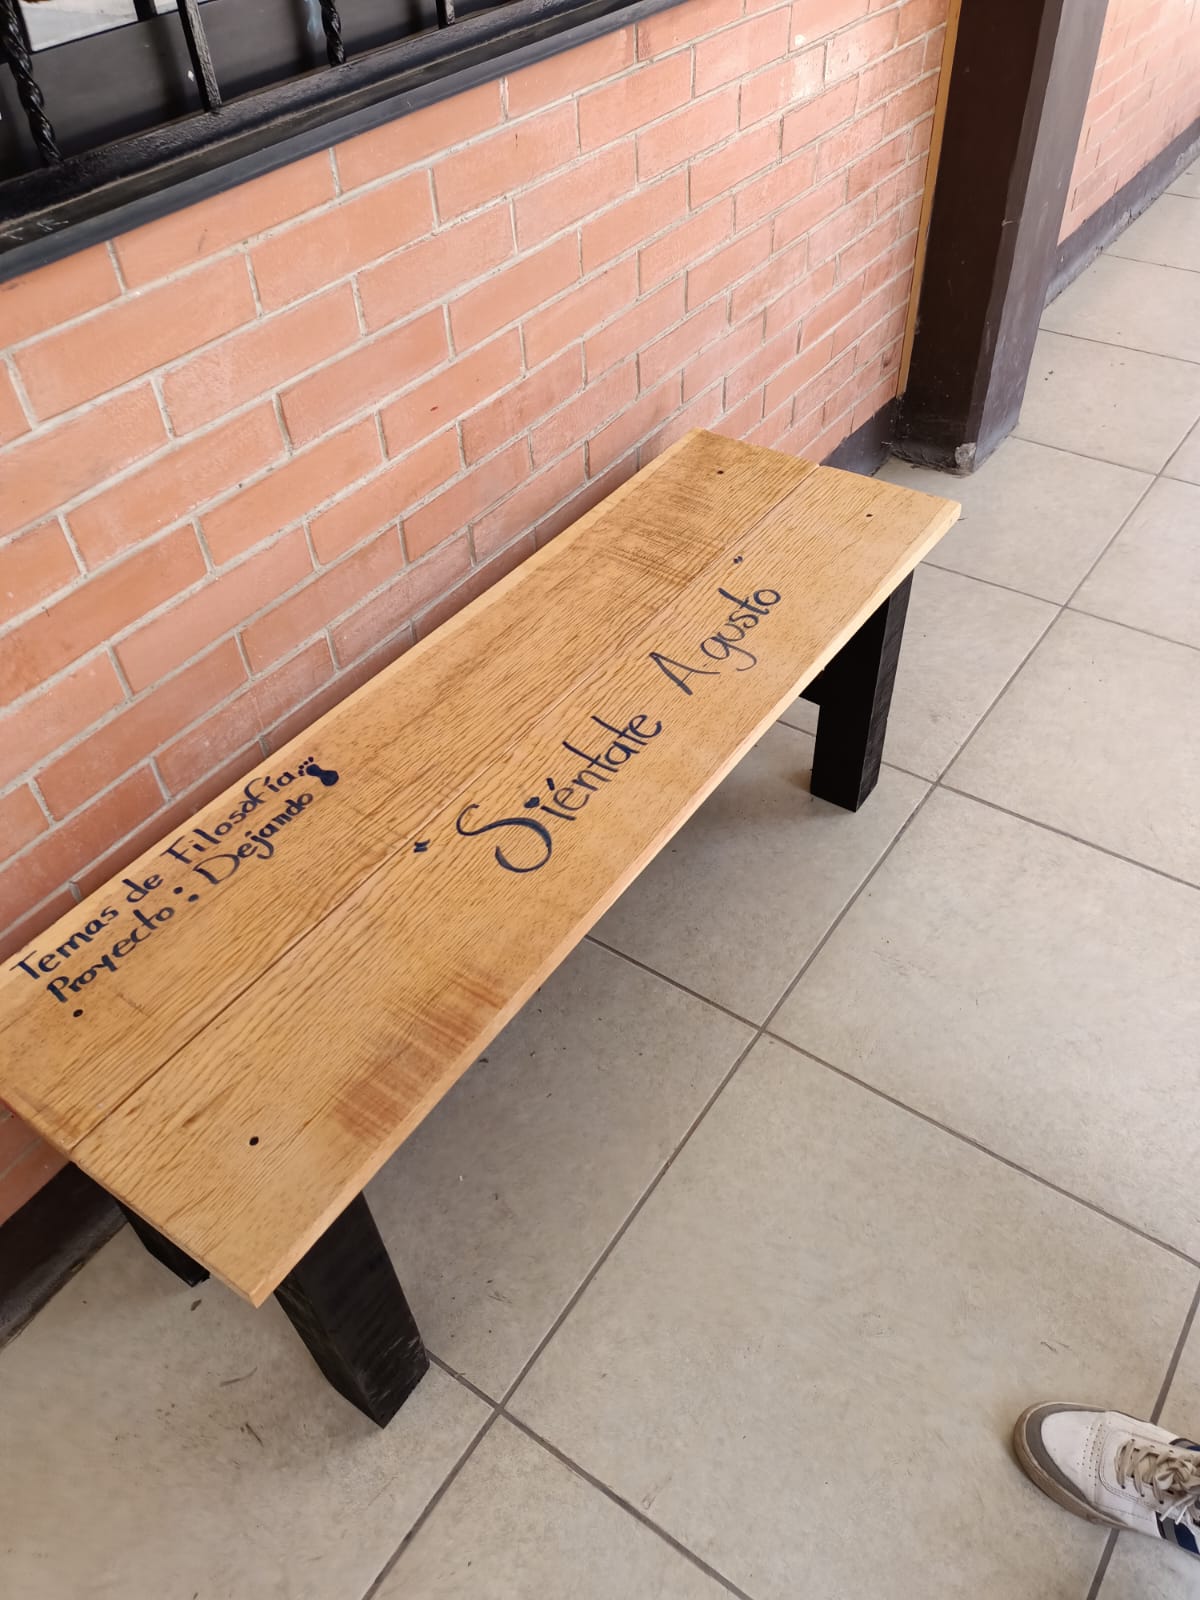 Temas de Filosofía
Proyecto: Dejando
"Siéntate Agusto"